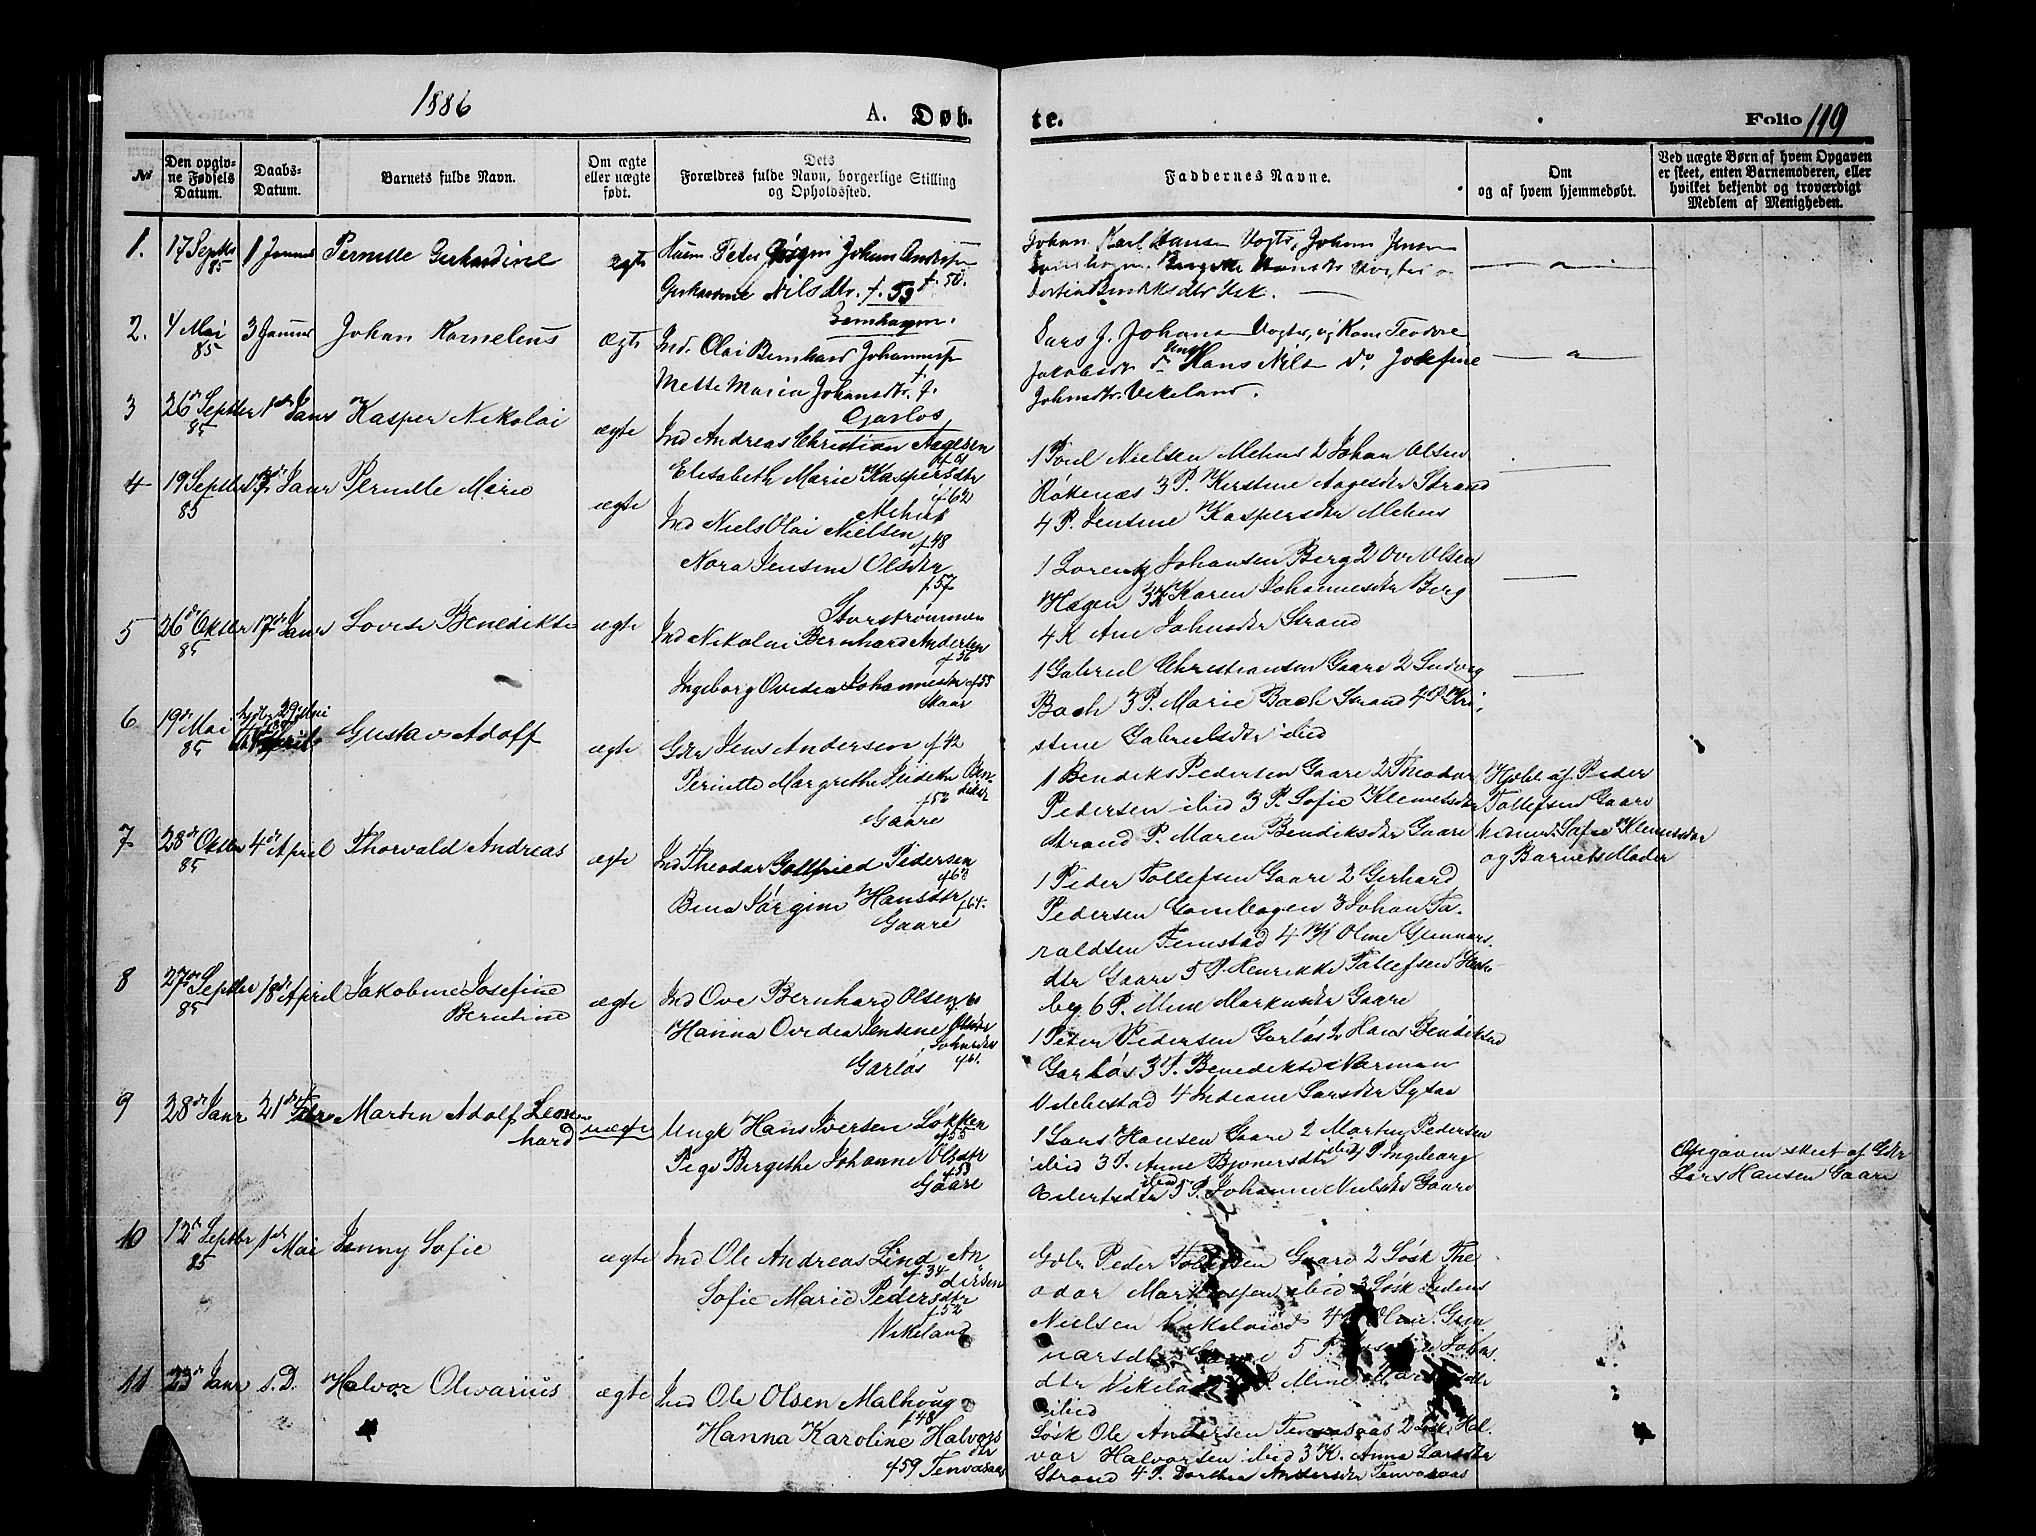 1886
A. Døb-
te.
Folio 119
№
Den opgiv-
ne Fødsels
Datum.
Daabs-
Datum.
Barnets fulde Navn.
Om ægte
eller uægte
født.
Dets
Forældres fulde Navn, borgerlige Stilling
og Opholdssted.
Faddernes Navne.
Om
og af hvem hjemmedøbt.
Ved uægte Børn af hvem Opgaven
er skeet, enten Barnemoderen, eller
hvilket bekjendt og troværdigt
Medlem af Menigheden.
1.
17 Septbr
85
1 Januar
Pernille Gerhardine
ægte
Huusm. Peter Johan Anders
f. 50.
Gerhardine Nilsdtr. f. 53
Gomhagen.
Johan Karl Hansen Vogts, Johan Jensen
2.
4 Mai
85
3 Januar
Johan Kornelius
ægte
Ind. Olai Bernhard Johannes
Mette Maria Johansdtr. f.
Garløs
Lars J. Johans Vogts, og Teodore
Jakobsdtr Hans Nils do. Josefine
Johnsdtr. Vikeland.
3
26de Septbr
85
1ste Janr
Kasper Nikolai
ægte
Ind Andreas Christian Aagesen
f 61
Elisabeth Marie Kaspersdtr
f 62
Mehus
1 Poul Nielsen Mehus 2 Johan Olsen
Røkenæs 3 P. Kirstine Aagesdtr Strand
4 P. Jensine Kaspersdtr Mehus
4
19 Septbr
85
17de Janr
Pernille Marie
ægte
Ind Niels Olai Nielsen
f 48
Nora Jensine Olsdtr
f. 57
Storstrømmen
1 Lorentz Johansen Berg 2 Ove Olsen
Hagen 3 K Karen Johannesdtr Berg
4 K Ane Johnsdtr Strand
5
26de Oktbr
85
17de Janr
Lovise Benedikte
ægte
Ind Nikolai Bernhard Andersen
f 56
Ingeborg Ovedea Johannesdtr f 55
Skaar
1 Gabriel Christiansen Gaare 2 Ludvig
Bach 3 P. Marie Bach Strand 4 P. Kri-
stine Gabrielsdtr ibid
6
19de Mai
85
hjdbt 29 Mai
Gustav Adolf
ægte
Gbr Jens Andersen f 42
Pernille Margrethe Judithe Ben-
diksdtr
f 52
Gaare
1 Bendiks Pedersen Gaare 2 Theodor
Pedersen ibid 3 P. Sofie Klemetsdtr
Strand P. Maren Bendiksdtr Gaare
Hjdbt. af Peder
Tollefsen Gaare
Sofie Klemetsdtr
og Barnets Moder
7
28de Oktbr
85
4de April
Thorvald Andreas
ægte
Ind Theodor Gottfried Pedersen
f 63
Bena Jørgine Hansdtr f 64.
Gaare
1 Peder Tollefsen Gaare 2 Gerhard
Pedersen Gomhagen 3 Johan Ta-
raldsen Finnstad 4 K Oline Gunnars-
dtr Gaare 5 P. Henrikke Tollefsen
6 P. Mine Markusdtr Gaare
8
27de Septbr
85
18de April
Jakobine Josefine
Berntine
ægte
Ind Ove Bernhard Olsen f 60
Hanna Ovedea Jensene
Johnsdtr
f 61.
Garløs
1 Peter Pedersen Garløs 2 Hans Bendiksen
Garløs 3 P. Benedikte Norman
Vibbestad 4 Indiane Larsdtr
9
28de Janr
21de Febr
Martin Adolf Leon-
hard
uægte
Ungk Hans Iversen Løkken
f 55
Pige Bergithe Johanne Olsdtr
f 53
Gaare
1 Lars Hansen Gaare 2 Morten Pedersen
ibid 3 P. Anne Bjonersdtr ibid 4 P. Ingeborg
Eilertsdtr ibid 5 P. Johanne Nielsdtr Gaare
Opgaven skeet af Gbr
Lars Hansen Gaare
10
12te Septbr
85
1ste Mai
Jenny Sofie
ægte
Ind Ole Andreas Lind An-
dersen
f 34
Sofie Marie Pedersdtr
f. 52
Vikeland
Gbr Peder Tollefsen Gaare 2 Løsk The-
odor ibid 3 Løsk
Nielsen Vikeland 4
narsdtr Gaare 5 P.
dtr Vikeland P. Mine
ibid
11
23de Janr
s. D.
Halvor Olivarius
ægte
Ind Ole Olsen Malhoug
f. 48
Hanna Karoline Halvors-
dtr
f 59 Tennevaas
Løsk Ole Andersen 2 Løsk Hal-
vor Halvorsen ibid 3 K. Anna Larsdtr
Strand 4 P. Dorthea Andersdtr